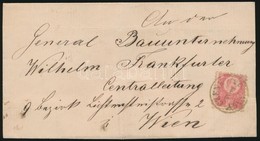 An die
General Bauunternehmung
Wilhelm Frankfurter
Centralleitung
9 Bezirk Lichtensteinstraße 2
Wien